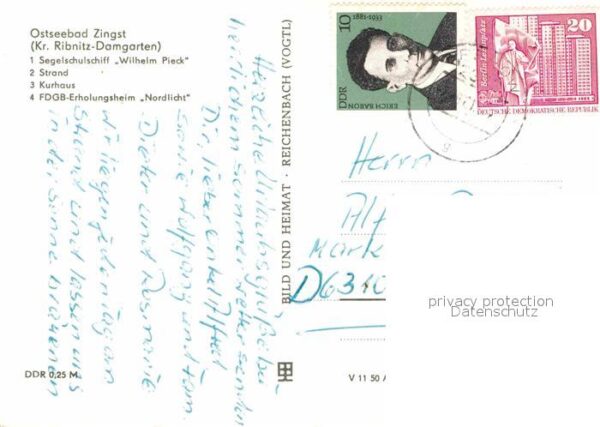 Ostseebad Zingst
(Kr. Ribnitz-Damgarten)
1 Segelschulschiff „Wilhelm Pieck"
2 Strand
3 Kurhaus
4 FDGB-Erholungsheim „Nordlicht"
Herzliche Urlaubsgrüße bei
herrlichem Sommerwetter senden
Dir, lieber
sowie Wolfgang und Fam.
Dieter und Rosmarie
Wir liegen jeden Tag am
Strand und lassen uns
in der Sonne
DDR 0,25 M
BILD UND HEIMAT · REICHENBACH (VOGTL)
V 11 50
10
1881-1933
DDR
ERICH BARON
20
Berlin-Leninplatz
DEUTSCHE DEMOKRATISCHE REPUBLIK
Herrn
Alf
Mark
D6340
privacy protection
Datenschutz